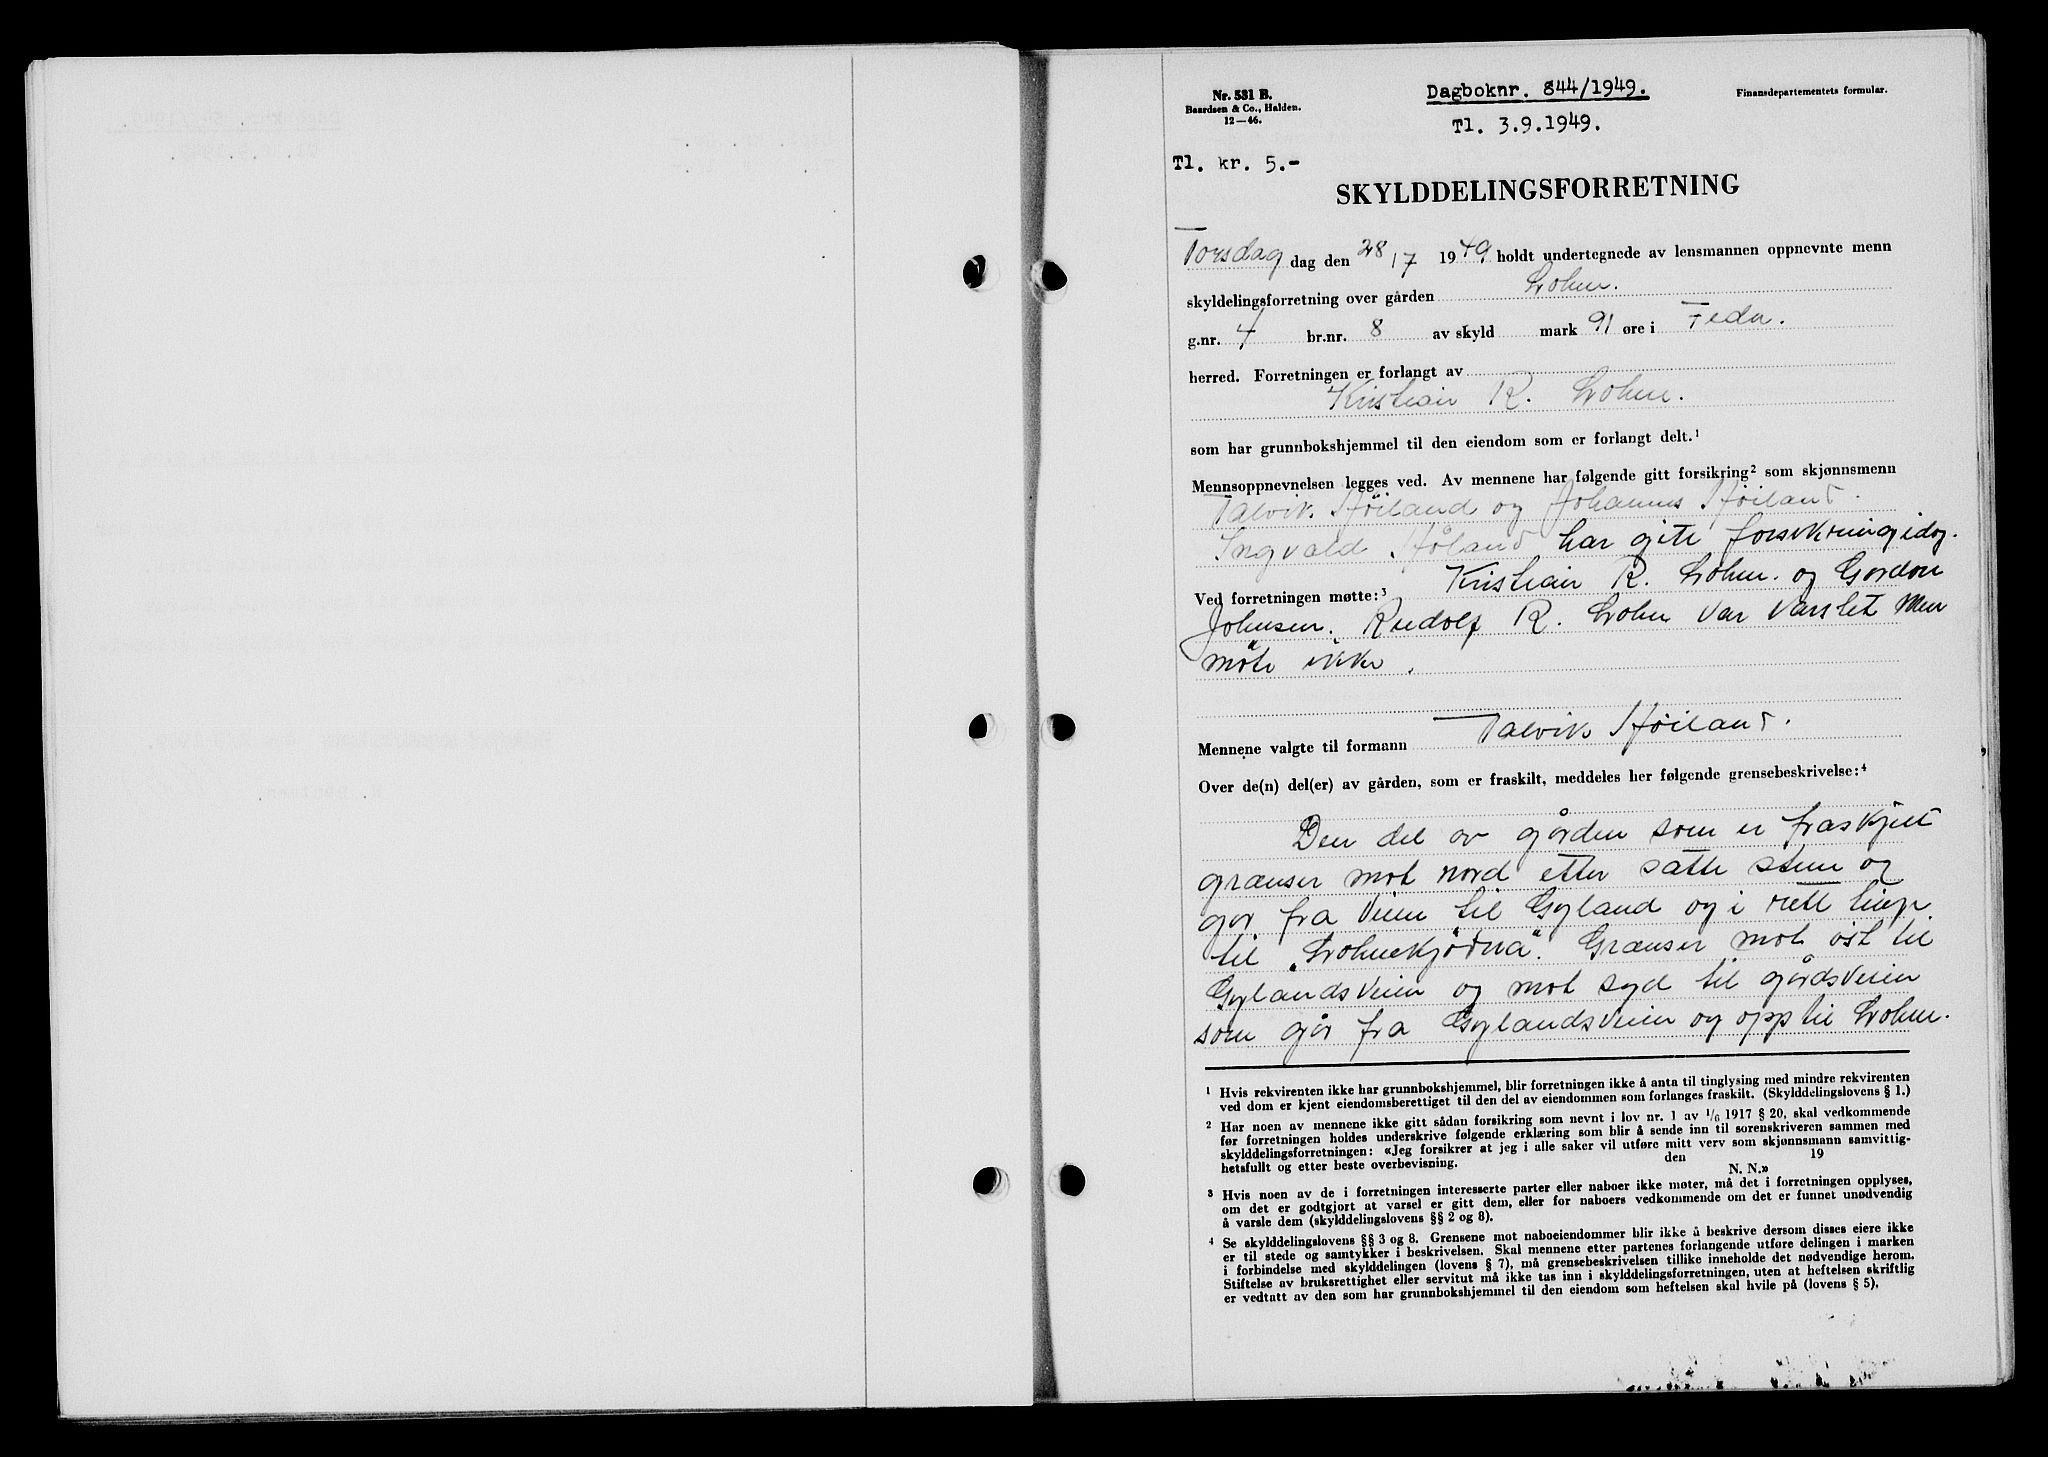 Nr. 531 B.
Baardsen & Co., Halden.
12—46.
Dagboknr. 844/1949.
Tl. 3.9.1949.
Finansdepartementets formular.
Tl. kr. 5.-
SKYLDDELINGSFORRETNING
Torsdag dag den 28/7 1949 holdt undertegnede av lensmannen oppnevnte menn
skyldelingsforretning over gården Lohne.
g.nr. 4 br.nr. 8 av skyld mark 91 øre i Feda.
herred. Forretningen er forlangt av
Kristian R. Lohne.
som har grunnbokshjemmel til den eiendom som er forlangt delt.¹
Mennsoppnevnelsen legges ved. Av mennene har følgende gitt forsikring² som skjønnsmenn
Talvik Støiland og Johannes Støiland.
Ingvald Støland har gitt forsikring idag.
Ved forretningen møtte:³ Kristian R. Lohne. og Gordon
Johnsen. Rudolf R. Lohne var varslet men
møte ikke.
Mennene valgte til formann Talvik Støiland.
Over de(n) del(er) av gården, som er fraskilt, meddeles her følgende grensebeskrivelse:⁴
Den del av gården som er fraskjilt
grænser mot nord etter satte stene og
går fra Veien til Gyland og i rett linje
til „Lohnekjødna“. Grænser mot øst til
Gylandsveien og mot syd til gårdsveien
som går fra Gylandsveien og opp til Lohne.
¹ Hvis rekvirenten ikke har grunnbokshjemmel, blir forretningen ikke å anta til tinglysing med mindre rekvirenten
ved dom er kjent eiendomsberettiget til den del av eiendommen som forlanges fraskilt. (Skylddelingslovens § 1.)
² Har noen av mennene ikke gitt sådan forsikring som nevnt i lov nr. 1 av 1/6 1917 § 20, skal vedkommende
før forretningen holdes underskrive følgende erklæring som blir å sende inn til sorenskriveren sammen med
skylddelingsforretningen: «Jeg forsikrer at jeg i alle saker vil utføre mitt verv som skjønnsmann samvittig-
hetsfullt og etter beste overbevisning. den 19
N. N.»
³ Hvis noen av de i forretningen interesserte parter eller naboer ikke møter, må det i forretningen opplyses,
om det er godtgjort at varsel er gitt dem, eller for naboers vedkommende om det er funnet unødvendig
å varsle dem (skylddelingslovens §§ 2 og 8).
⁴ Se skylddelingslovens §§ 3 og 8. Grensene mot naboeiendommer blir ikke å beskrive dersom disses eiere ikke
er til stede og samtykker i beskrivelsen. Skal mennene etter partenes forlangende utføre delingen i marken
i forbindelse med skylddelingen (lovens § 7), må grensebeskrivelsen tillike inneholde det nødvendige herom.
Stiftelse av bruksrettighet eller servitut må ikke tas inn i skylddelingsforretningen, uten at heftelsen skriftlig
er vedtatt av den som har grunnbokshjemmel til den eiendom som heftelsen skal hvile på (lovens § 5).